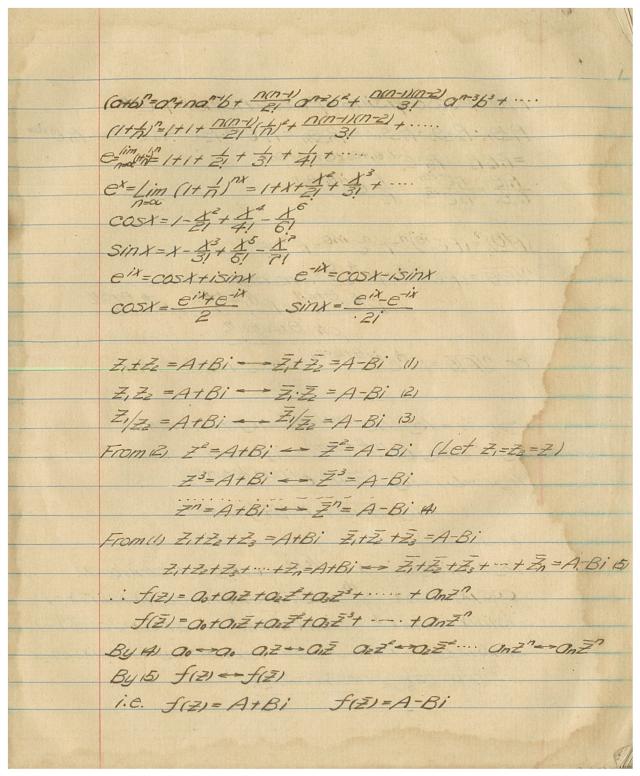 (a+b)ⁿ=aⁿ+naⁿ⁻¹b+ n(n-1)/2! aⁿ⁻²b²+ n(n-1)(n-2)/3! aⁿ⁻³b³+ ····
(1+1/n)ⁿ=1+1+ n(n-1)/2! (1/n)²+ n(n-1)(n-2)/3! + ·····
e= lim n=∞ (1+1/n)ⁿ=1+1+ 1/2! + 1/3! + 1/4! + ·····
eˣ=Lim n=∞ (1+1/n)ⁿˣ=1+x+x²/2!+x³/3!+ ····
cosx=1-x²/2!+x⁴/4!-x⁶/6!
sinx=x-x³/3!+x⁵/6!-x⁷/7!
eⁱˣ=cosx+isinx e⁻ⁱˣ=cosx-isinx
cosx=(eⁱˣ+e⁻ⁱˣ)/2 sinx=(eⁱˣ-e⁻ⁱˣ)/2i
z₁+z₂=A+Bi ↔ z̄₁+z̄₂=A-Bi (1)
z₁z₂=A+Bi ↔ z̄₁·z̄₂=A-Bi (2)
z₁/z₂=A+Bi ↔ z̄₁/z̄₂=A-Bi (3)
From(2) z²=A+Bi ↔ z̄²=A-Bi (Let z₁=z₂=z)
z³=A+Bi ↔ z̄³=A-Bi
zⁿ=A+Bi ↔ z̄ⁿ=A-Bi (4)
From(1) z₁+z₂+z₃=A+Bi z̄₁+z̄₂+z̄₃=A-Bi
z₁+z₂+z₃+····+zₙ=A+Bi ↔ z̄₁+z̄₂+z̄₃+···+z̄ₙ=A-Bi (5)
∴ f(z)=a₀+a₁z+a₂z²+a₃z³+ ······ + aₙzⁿ
f(z̄)=a₀+a₁z̄+a₂z̄²+a₃z̄³+ ····· +aₙz̄ⁿ
By (4) a₀↔a₀ a₁z↔a₁z̄ a₂z²↔a₂z̄² ···· aₙzⁿ↔aₙz̄ⁿ
By (5) f(z)↔f(z̄)
i.e. f(z)=A+Bi f(z̄)=A-Bi